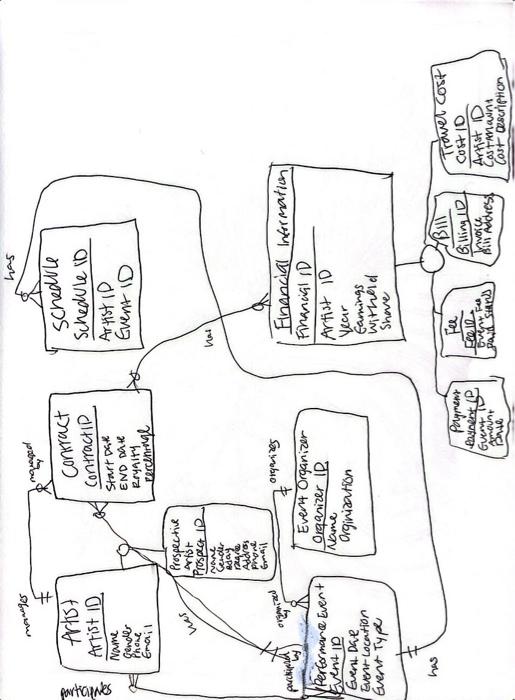 has
Schedule
Schedule ID
Artist ID
Event ID
Financial Information
Financial ID
Artist ID
Year
Earnings
Withheld
Share
Travel Cost
Cost ID
Artist ID
Cost Amount
Cost Description
Bill
Billing ID
Invoice
Bill Address
Fee
Fee ID
Event Fee
Paid Status
Payment
Payment ID
Event ID
Amount
Date
has
managed
by
Contract
Contract ID
Start Date
END Date
Royalty
Percentage
manages
Artist
Artist ID
Name
Gender
Phone
Email
Prospective
Artist
Prospect ID
Name
Gender
Address
Phone
Email
has
organizes
Event Organizer
Organizer ID
Name
Orginization
organized
by
participates
by
Performance Event
Event ID
Event Date
Event Location
Event Type
has
participates